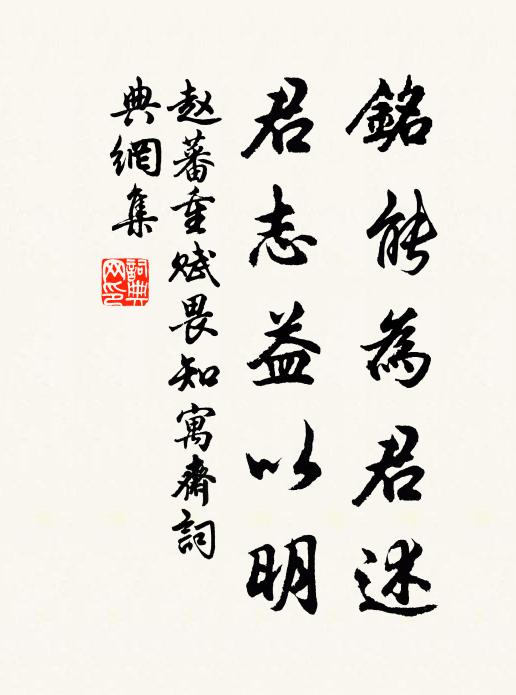 銘能為君述
君志益以明
赵蕃重赋畏知寓齋詞
典網集
詞典
网印